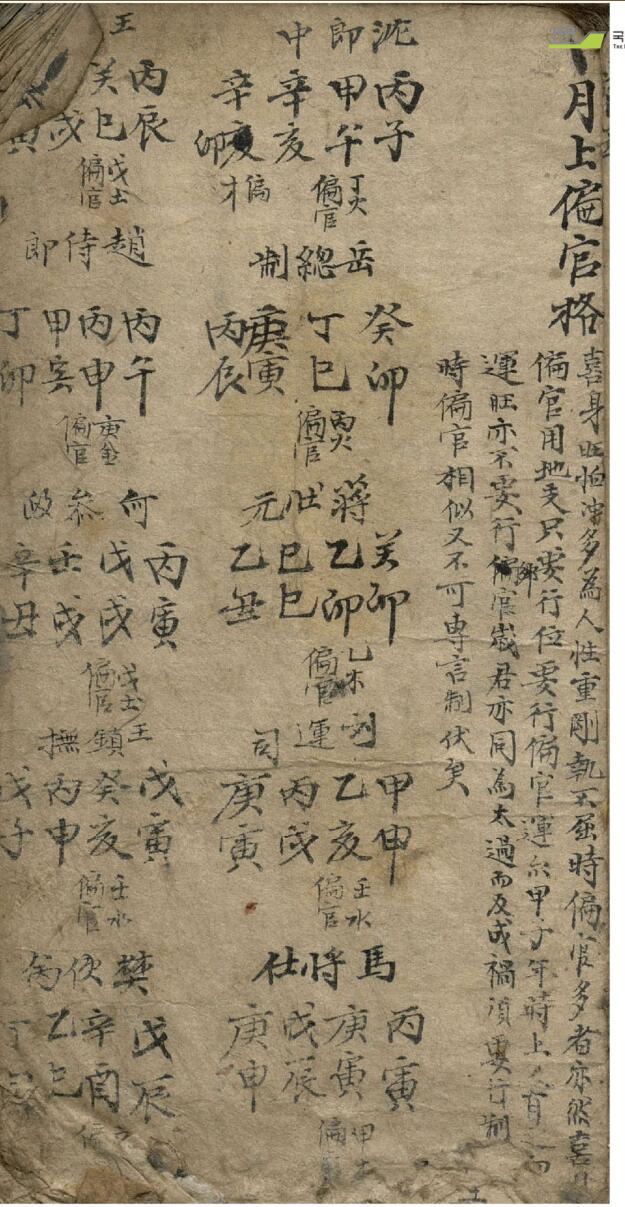 月上偏官格
喜身旺怕冲多為人性重剛執不屈時偏官多者亦然喜
偏官用地支只要行位要行偏官運 甲子年時上
運旺亦不要行偏官歲君亦同為太過而反成禍須要行制
時偏官相似又不可專言制伏矣
沈即中
丙子
甲午
辛亥
辛卯
丁火偏官
偏才
岳總制
癸卯
丁巳
庚寅
丙辰
丙火偏官
蔣壯元
癸卯
乙卯
己巳
乙丑
乙木偏官
運司
甲申
乙亥
丙戌
庚寅
壬水偏官
馬將仕
丙寅
庚寅
戊辰
庚申
甲 偏
王
丙辰
癸巳
戌
寅
戊土偏官
趙侍郎
丙午
丙申
甲
丁卯
庚金偏官
何參政
丙寅
戊戌
壬戌
辛丑
戊土偏官
王鎮撫
戊寅
癸亥
丙申
戊子
壬水偏官
樊
戊辰
辛酉
乙巳
丁
偏